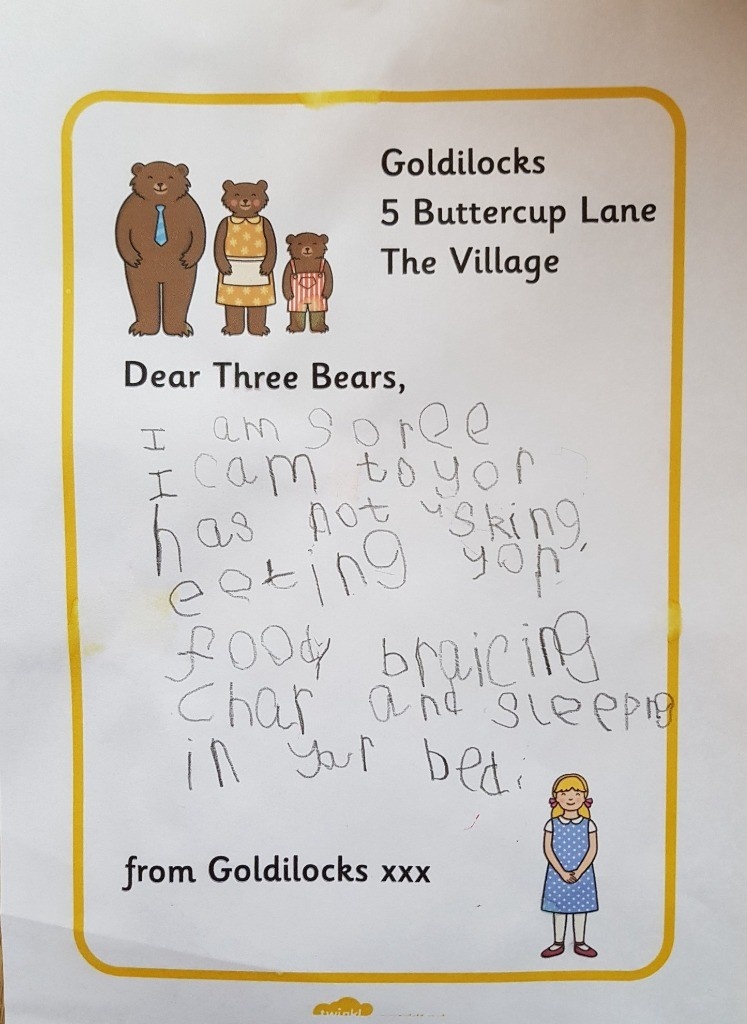 Goldilocks
5 Buttercup Lane
The Village
Dear Three Bears,
I am soree
I cam to yor
has not usking
eeting yor
food braicing
char and sleeping
in your bed.
from Goldilocks xxx
twinkl